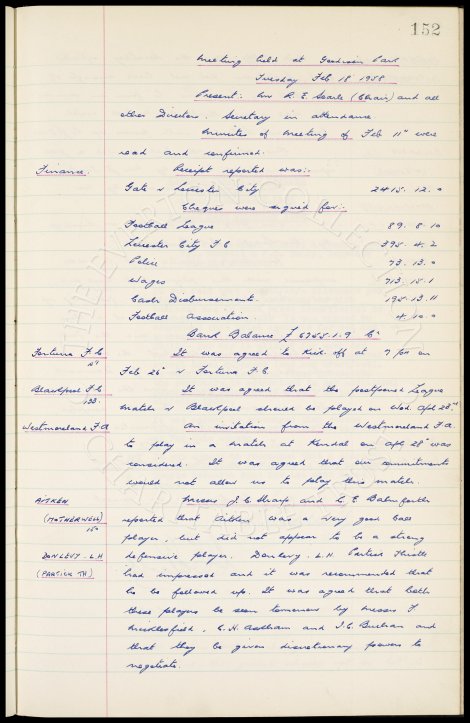 152
Meeting held at Goodison Park
Tuesday Feb 18 1958
Present: Mr R. E. Searle (Chair) and all
other Directors. Secretary in attendance
Minutes of Meeting of Feb 11th were
read and confirmed.
Finance. Receipt reported was:-
Gate v Leicester City 2415. 12. 0
Cheques were signed for:-
Football League 89. 8. 10
Leicester City F C 395. 4. 2
Police 73. 13. 0
Wages 713. 15. 1
Cash Disbursements 195. 13. 11
Football Association. 4. 10. 0
Bank Balance £ 6755. 1. 9
Fortuna F C It was agreed to Kick off at 7 pm on
Feb 26th v Fortuna F C
Blackpool F C It was agreed that the postponed League
133. match v Blackpool should be played on Wed. Apl 23rd
Westmoreland F A An invitation from the Westmoreland F A
to play in a match at Kendal on Apl 28th was
considered. It was agreed that our commitments
would not allow us to play this match.
AITKEN Messrs J. C. Sharp and C. E. Balmforth
(MOTHERWELL) reported that Aitken was a very good ball
15a player, but did not appear to be a strong
DONLEVY. L.H defensive player. Donlevy. L.H. Partick Thistle
(PARTICK TH) had impressed and it was recommended that
he be followed up. It was agreed that both
these players be seen tomorrow by Messrs F
Micklesfield, C. H. Askham and I. C. Buchan and
that they be given discretionary powers to
negotiate.
THE EVERTON COLLECTION
CHARITABLE